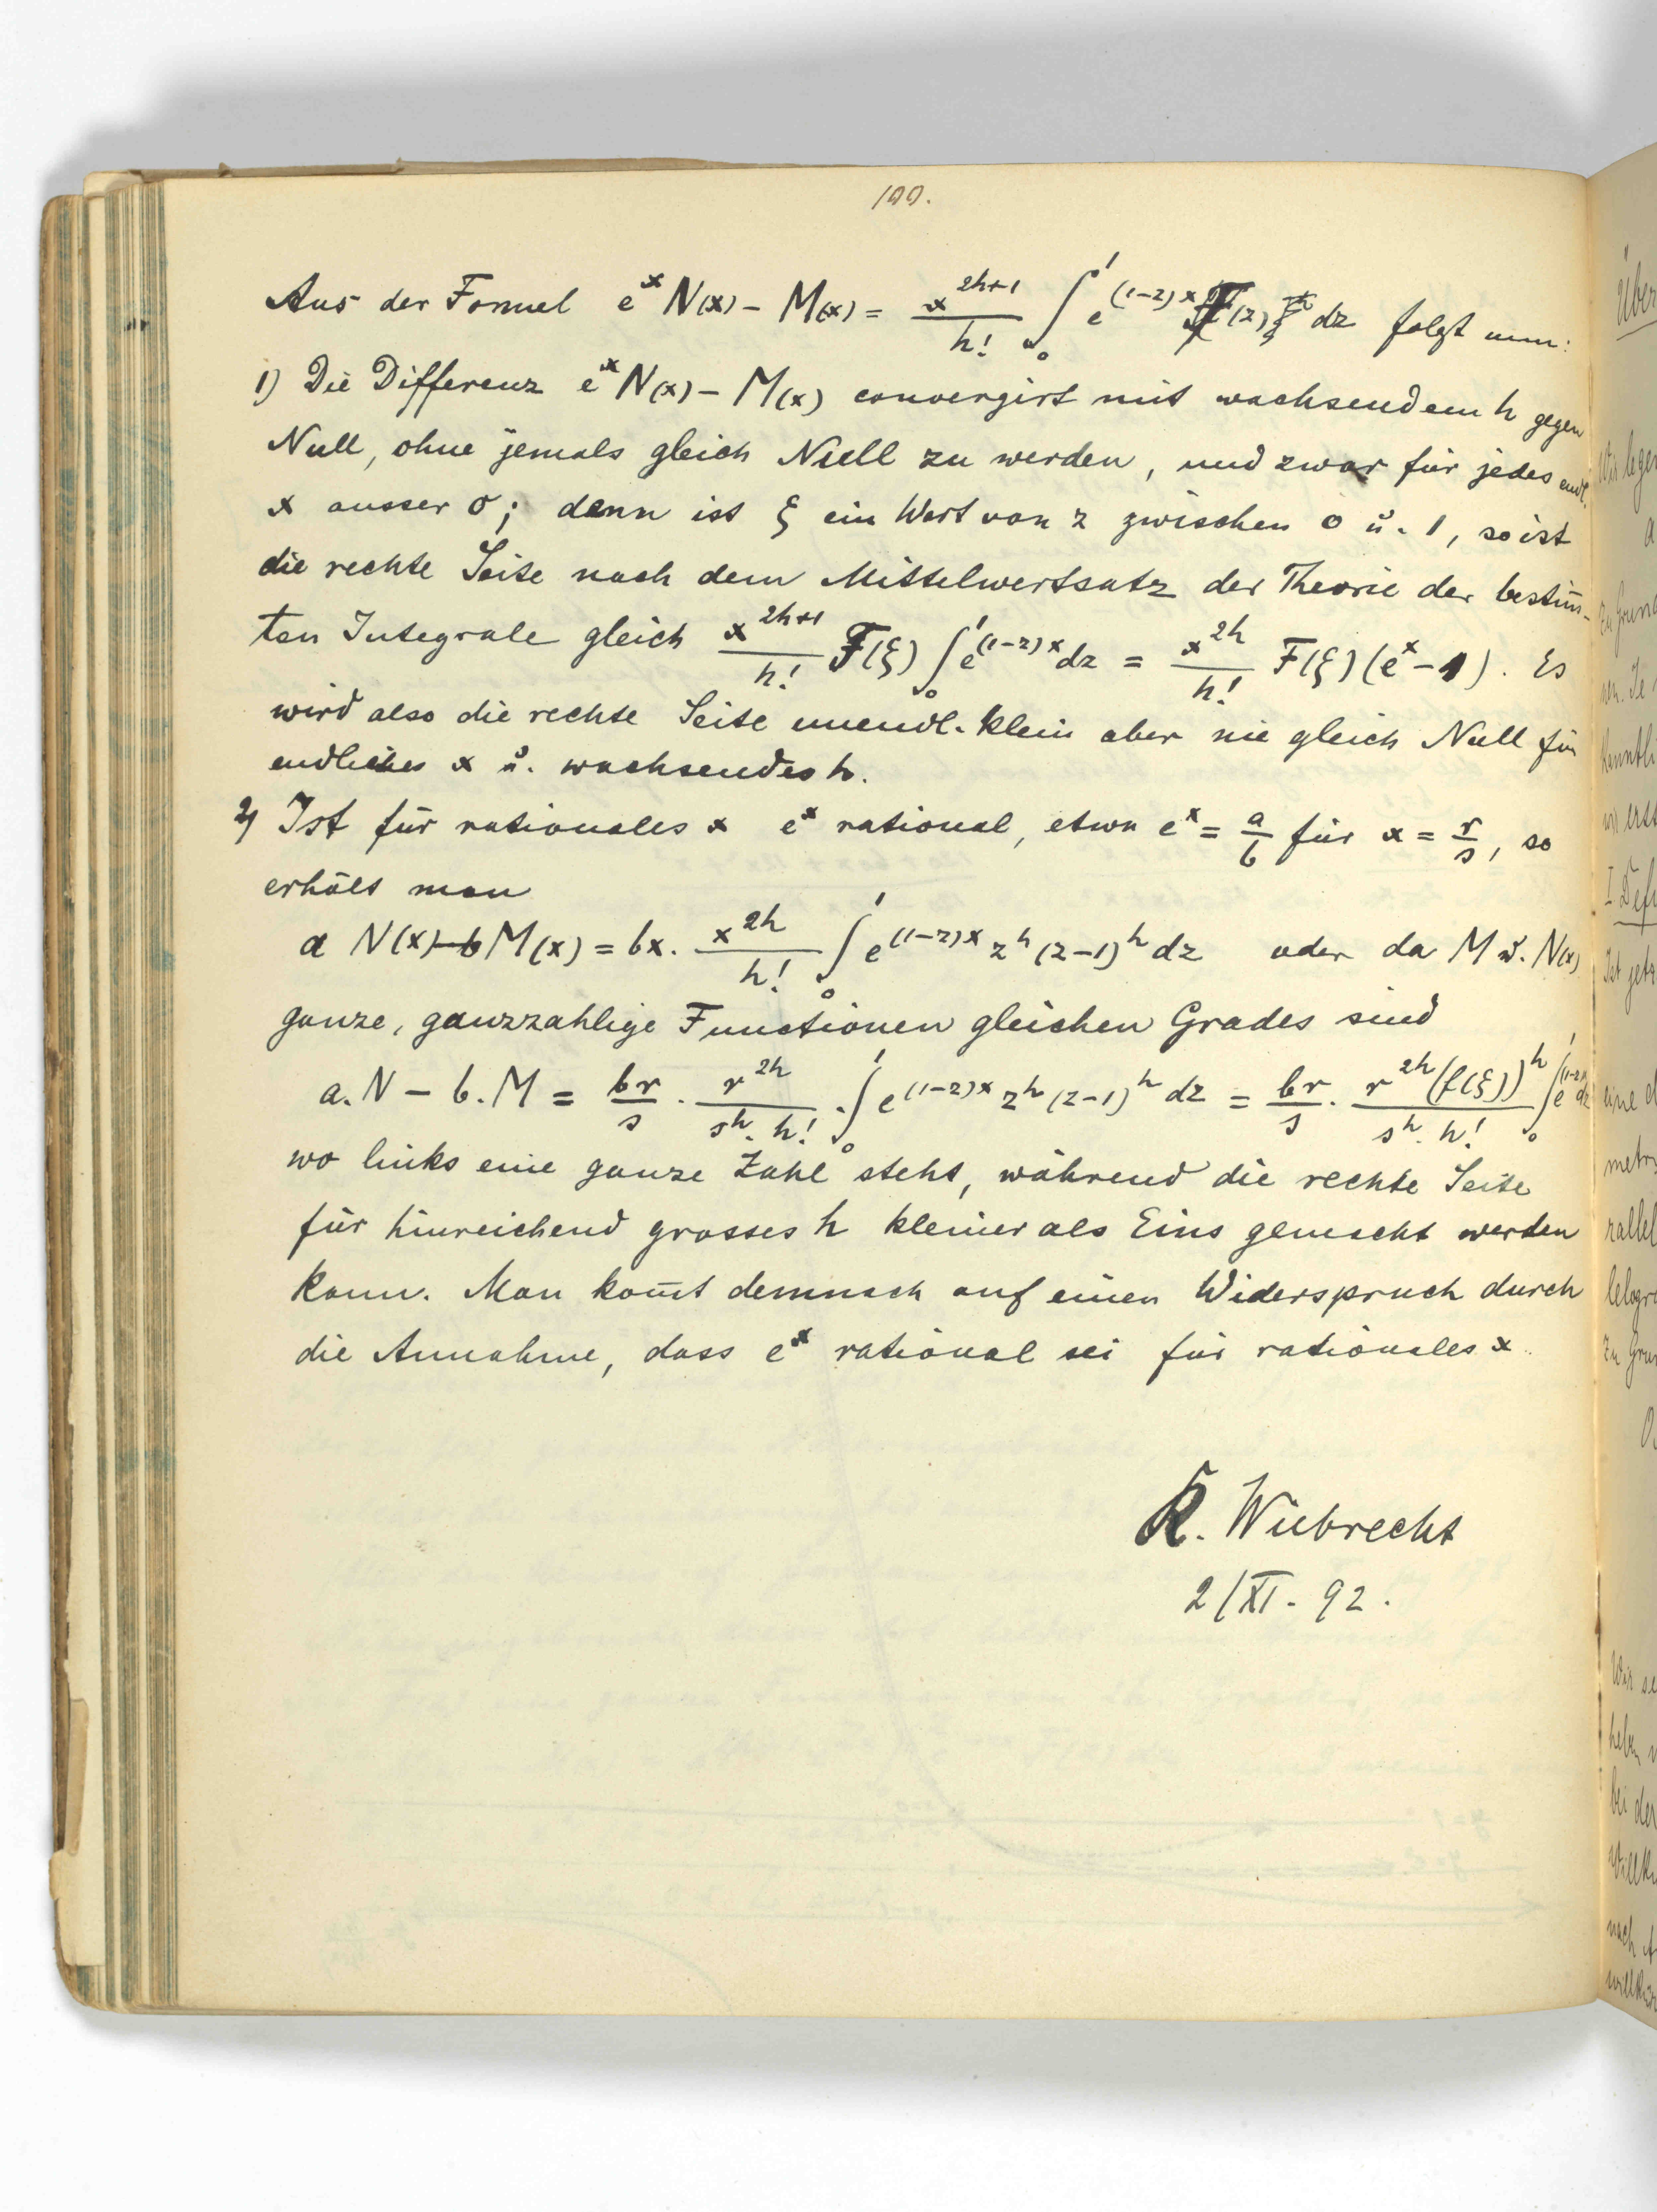 199.
Aus der Formel e^x N(x) − M(x) = x^{2h+1}/h! ∫_0^1 e^{(1−z)x} F(z) dz folgt nun:
1) Die Differenz e^x N(x) − M(x) convergirt mit wachsendem h gegen
Null, ohne jemals gleich Null zu werden, und zwar für jedes endl.
x ausser 0; denn ist ξ ein Wert von z zwischen 0 u. 1, so ist
die rechte Seite nach dem Mittelwertsatz der Theorie der bestim̅-
ten Integrale gleich x^{2h+1}/h! F(ξ) ∫_0^1 e^{(1−z)x} dz = x^{2h}/h! F(ξ)(e^x − 1). Es
wird also die rechte Seite unendl. klein aber nie gleich Null für
endliches x u. wachsendes h.
2) Ist für rationales x e^x rational, etwa e^x = a/b für x = r/s, so
erhält man
a N(x) − b M(x) = bx. x^{2h}/h! ∫_0^1 e^{(1−z)x} z^h (z−1)^h dz oder da M u. N(x)
ganze, ganzzahlige Functionen gleichen Grades sind
a. N − b. M = br/s . r^{2h}/(s^h. h!) . ∫_0^1 e^{(1−z)x} z^h (z−1)^h dz = br/s . r^{2h}(f(ξ))^h/(s^h. h!) ∫_0^1 e^{(1−z)x} dz
wo links eine ganze Zahl steht, während die rechte Seite
für hinreichend grosses h kleiner als Eins gemacht werden
kann. Man kom̅t demnach auf einen Widerspruch durch
die Annahme, dass e^x rational sei für rationales x.
K. Wiebrecht
2/XI. 92.